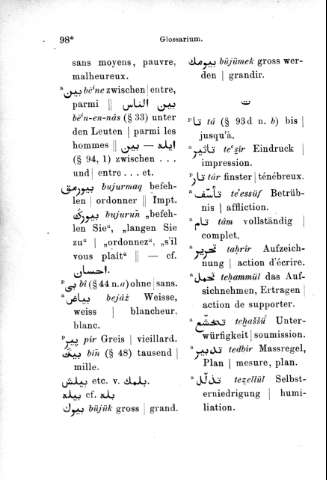 98*
Glossarium.
sans moyens, pauvre,
malheureux.
ᵃبين bé'ne zwischen | entre,
parmi ‖ بين الناس
bé'n-en-nás (§ 33) unter
den Leuten | parmi les
hommes ‖ بين — ايله
(§ 94, 1) zwischen . . .
und | entre . . . et.
بيورمق bujurmaq befeh-
len | ordonner ‖ Impt.
بيورك bujuruñ „befeh-
len Sie“, „langen Sie
zu“ | „ordonnez“, „s'il
vous plaît“ ‖ — cf.
احسان.
ᵖبى bî (§ 44 n. a) ohne | sans.
ᵃبياض bejáż Weisse,
weiss | blancheur.
blanc.
ᵖپير pír Greis | vieillard.
بيك biñ (§ 48) tausend |
mille.
بيلش etc. v. بلمك.
بيله cf. بله.
بيوك büjük gross | grand.
بيومك büjümek gross wer-
den | grandir.
ت
ᵖتا tá (§ 93d n. b) bis |
jusqu'à.
ᵃتأثير te's̱ír Eindruck |
impression.
ᵖتار tár finster | ténébreux.
ᵃتأسف te'essüf Betrüb-
nis | affliction.
ᵃتام tám vollständig |
complet.
ᵃتحرير taḥrír Aufzeich-
nung | action d'écrire.
ᵃتحمل teḥammül das Auf-
sichnehmen, Ertragen |
action de supporter.
ᵃتخشع teḫaššú' Unter-
würfigkeit | soumission.
ᵃتدبير tedbír Massregel,
Plan | mesure, plan.
ᵃتذلل teẕellül Selbst-
erniedrigung | humi-
liation.